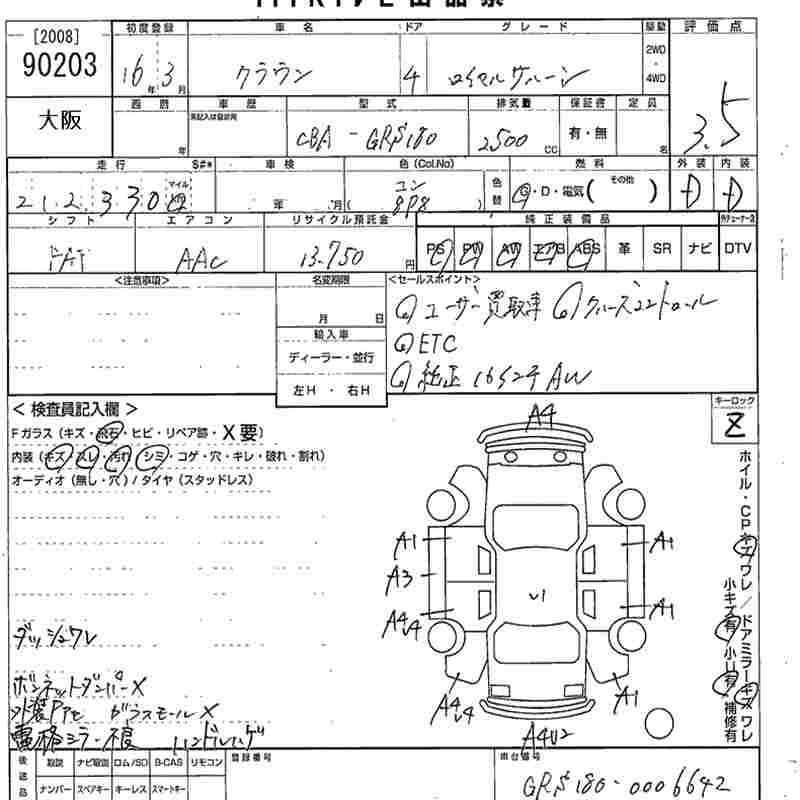 [2008]
90203
初度登録 車名 ドア グレード 駆動 評価点
16年 3月 クラウン 4 ロイヤルサルーン 2WD・4WD 3.5
大阪
西暦 車歴 型式 排気量 保証書 定員
年 CBA-GRS180 2500cc 有・無 名
走行 S#* 車検 色(Col.No) 燃料 外装 内装
212,330 マイル 年 月( コン 8P8 ) 色替 G・D・電気( その他 ) D D
シフト エアコン リサイクル預託金 純正装備品
FAT AAC 13.750円 PS PW AW エアB ABS 革 SR ナビ DTV
<注意事項> 名変期限 <セールスポイント>
月 日
ユーザー買取車 クルーズコントロール
輸入車
ETC
ディーラー・並行
純正16インチAW
左H・右H
<検査員記入欄> キーロック
A4 Z
Fガラス(キズ・飛石・ヒビ・リペア跡・X要)
内装(キズ・スレ・汚れ・シミ・コゲ・穴・キレ・破れ・割れ)
オーディオ(無し・穴)/タイヤ(スタッドレス)
ホイル・CPキズワレ/ドアミラーキズワレ
小キズ有 小U有 補修有
A1 A1
A3
U1
A4 U4 A1
ダッシュワレ
ボンネットダンパーX
A4 U4 A1
ガラスモールX
電格ミラー不良 ハンドルハゲ
A4U2
後送品 取説 ナビ取説 ロム/SD B-CAS リモコン 登録番号 車台番号
ナンバー スペアキー キーレス スマートキー GRS180-0006642